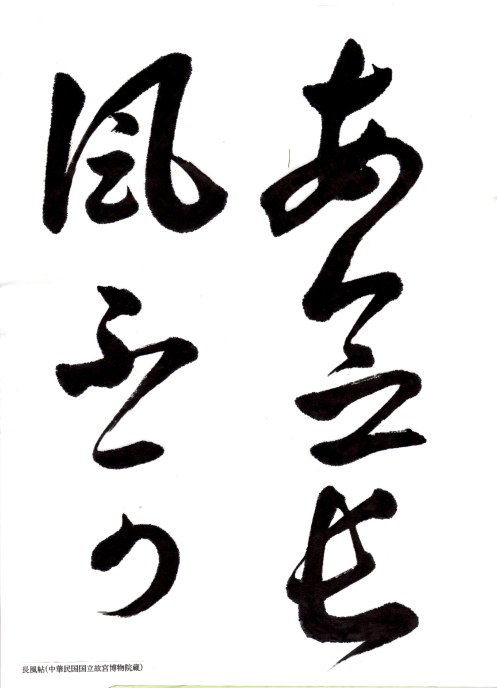 每念長
風不可
長風帖(中華民国国立故宮博物院蔵)